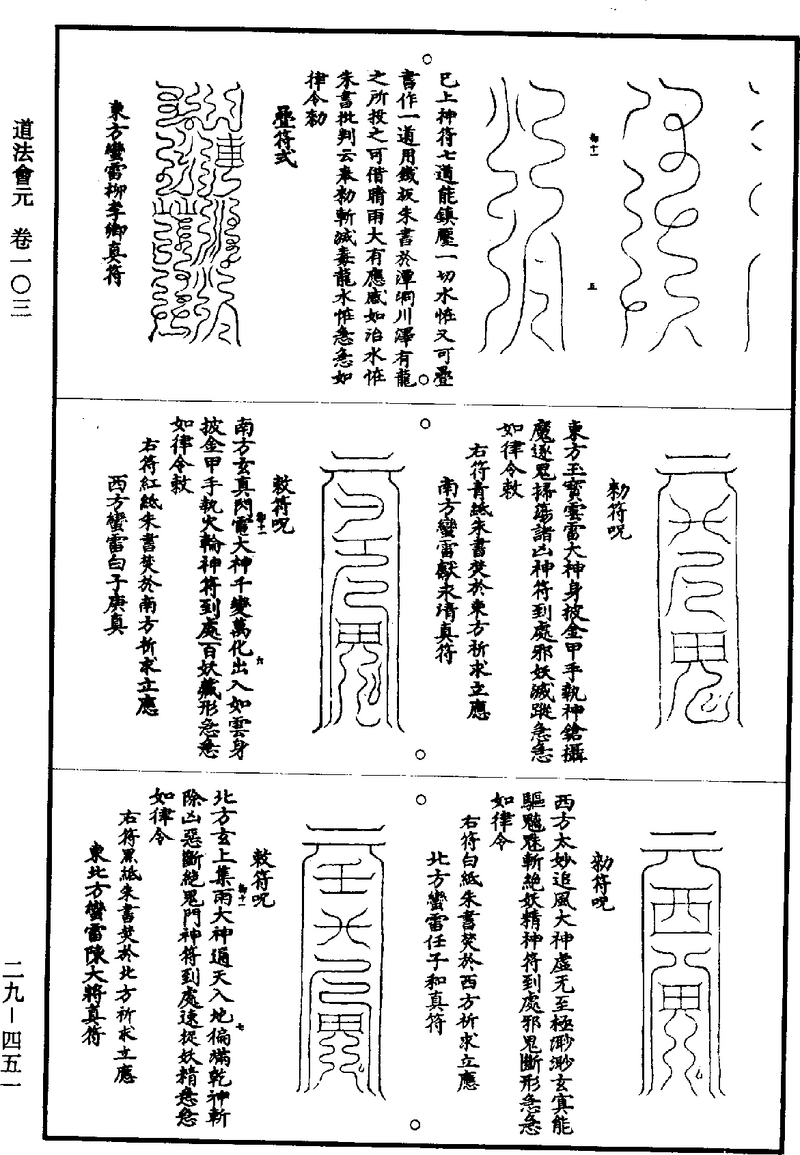 道法會元　卷一〇三
二九－四五一
五
已上神符七道能鎮壓一切水恠又可疊
書作一道用鐵板朱書於潭洞川澤有龍
之所投之可借晴雨大有應感如治水恠
朱書批判云奉勑斬滅毒龍水恠急急如
律令勑
疊符式
東方蠻雷柳李卿真符
勑符呪
東方玉寶雲雷大神身披金甲手執神鎗攝
魔逐鬼掃蕩諸凶神符到處邪妖滅蹤急急
如律令敕
右符青紙朱書焚於東方祈求立應
南方蠻雷獻永清真符
敕符呪
南方玄真閃雷大神千變萬化出入如雲身
六
披金甲手執火輪神符到處百妖藏形急急
如律令敕
右符紅紙朱書焚於南方祈求立應
西方蠻雷白子庚真
勑符呪
西方太妙追風大神虛无至極渺渺玄寞能
驅魑魅斬絕妖精神符到處邪鬼斷形急急
如律令
右符白紙朱書焚於西方祈求立應
北方蠻雷任子和真符
敕符呪
北方玄上集雨大神遍天入地徧滿乾神斬
七
除凶惡斷絕鬼門神符到處速捉妖精急急
如律令
右符黑紙朱書焚於北方祈求立應
東北方蠻雷陳大將真符